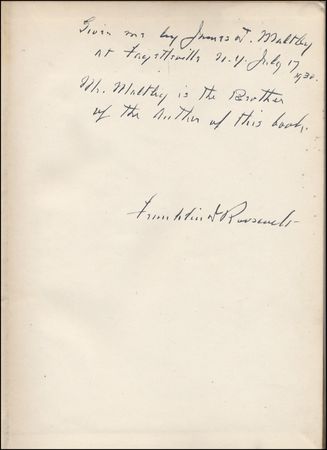 Given me by James J. Maltby
at Fayetteville N.Y. July 17
1930.
Mr. Maltby is the Brother
of the author of this book.
Franklin D Roosevelt